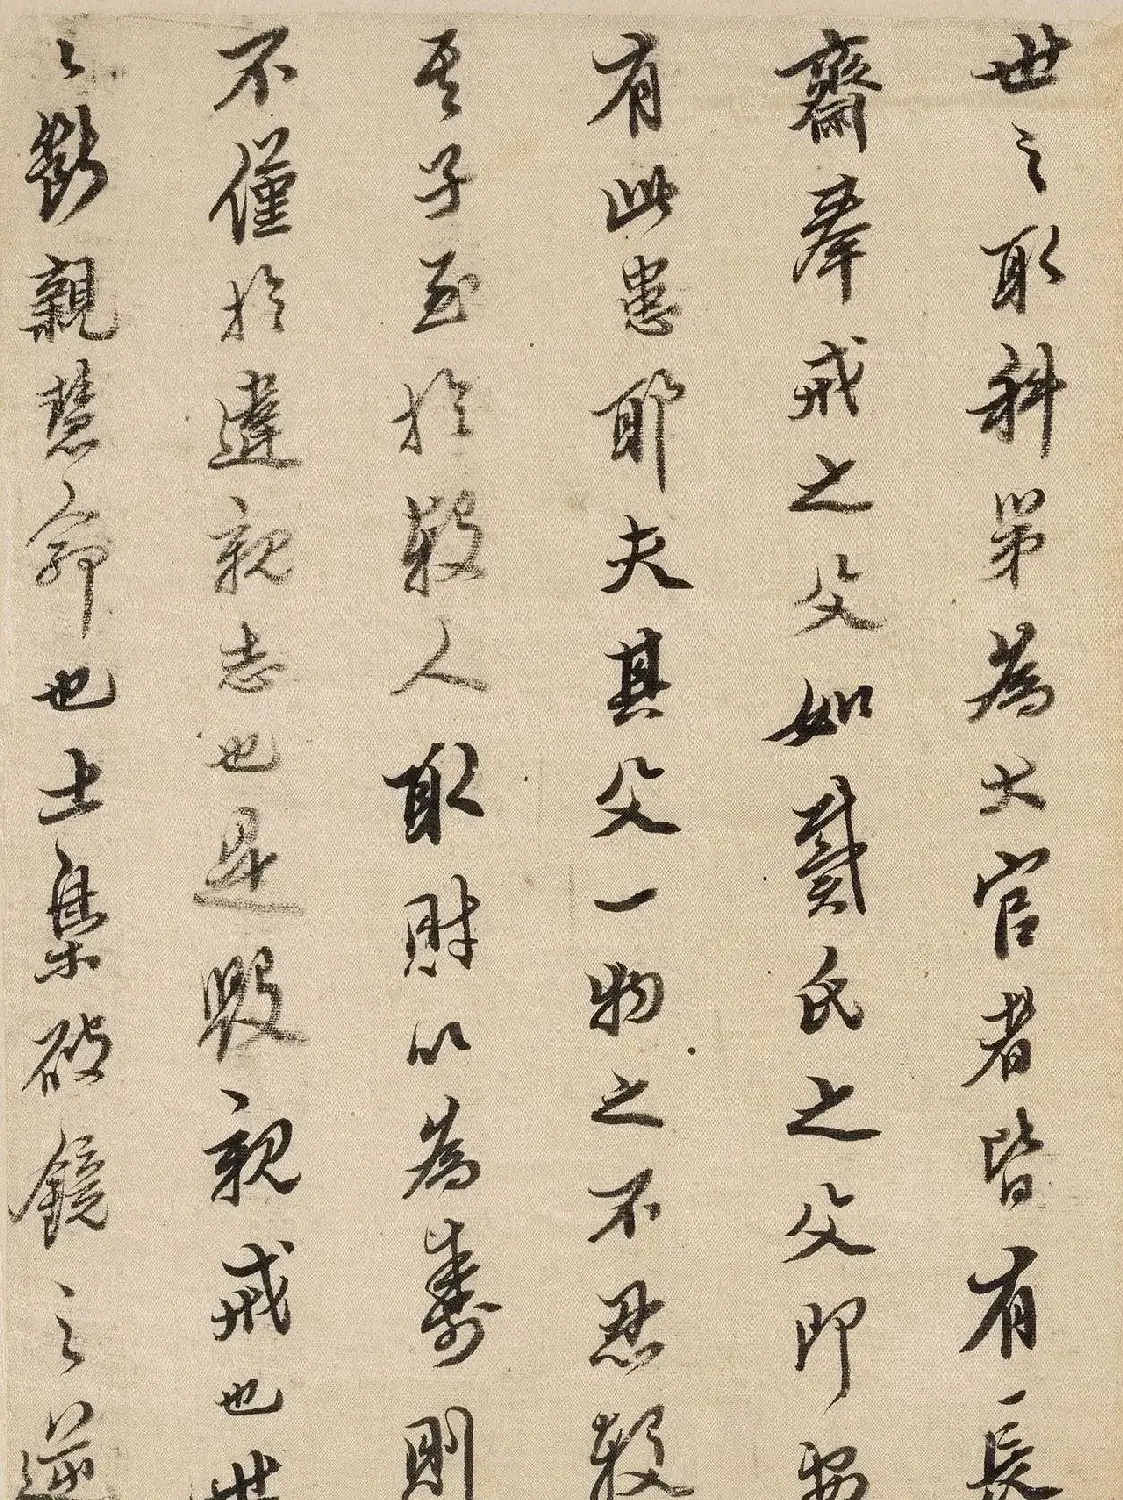 世之取科第為大官者皆有一長
齋奉戒之父如戴氏之父即安
有此患耶夫其父一物之不忍殺
其子至於殺人取財以為壽則
不僅於違親志也是毀親戒也世
之斷親慧命也土梟破鏡之逆